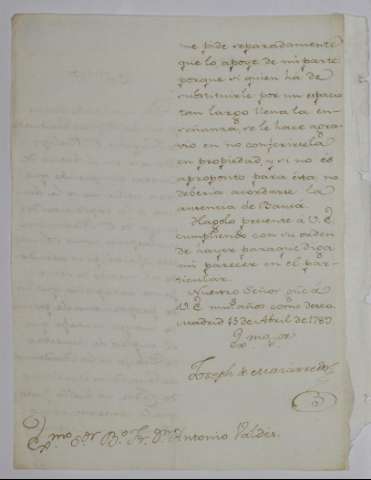 me pide separadamente
que lo apoye de mi parte
porque si quien ha de
substituirle por un espacio
tan largo llena la en-
señanza, se le hace agra-
vio en no conferirsela
en propiedad, y si no es
aproposito para esta no
deberia acordarse la
ausencia de Bauzá.
Hagolo presente a V.E.
cumpliendo con su orden
de ayer para que diga
mi parecer en el par-
ticular.
Nuestro Señor gue. a
V.E. ms. años como deseo
Madrid 13 de Abril de 1787.
Exmo. Sor.
Joseph de Mazarredo
Exmo. Sor. Bo. Fr. Dn. Antonio Valdés.